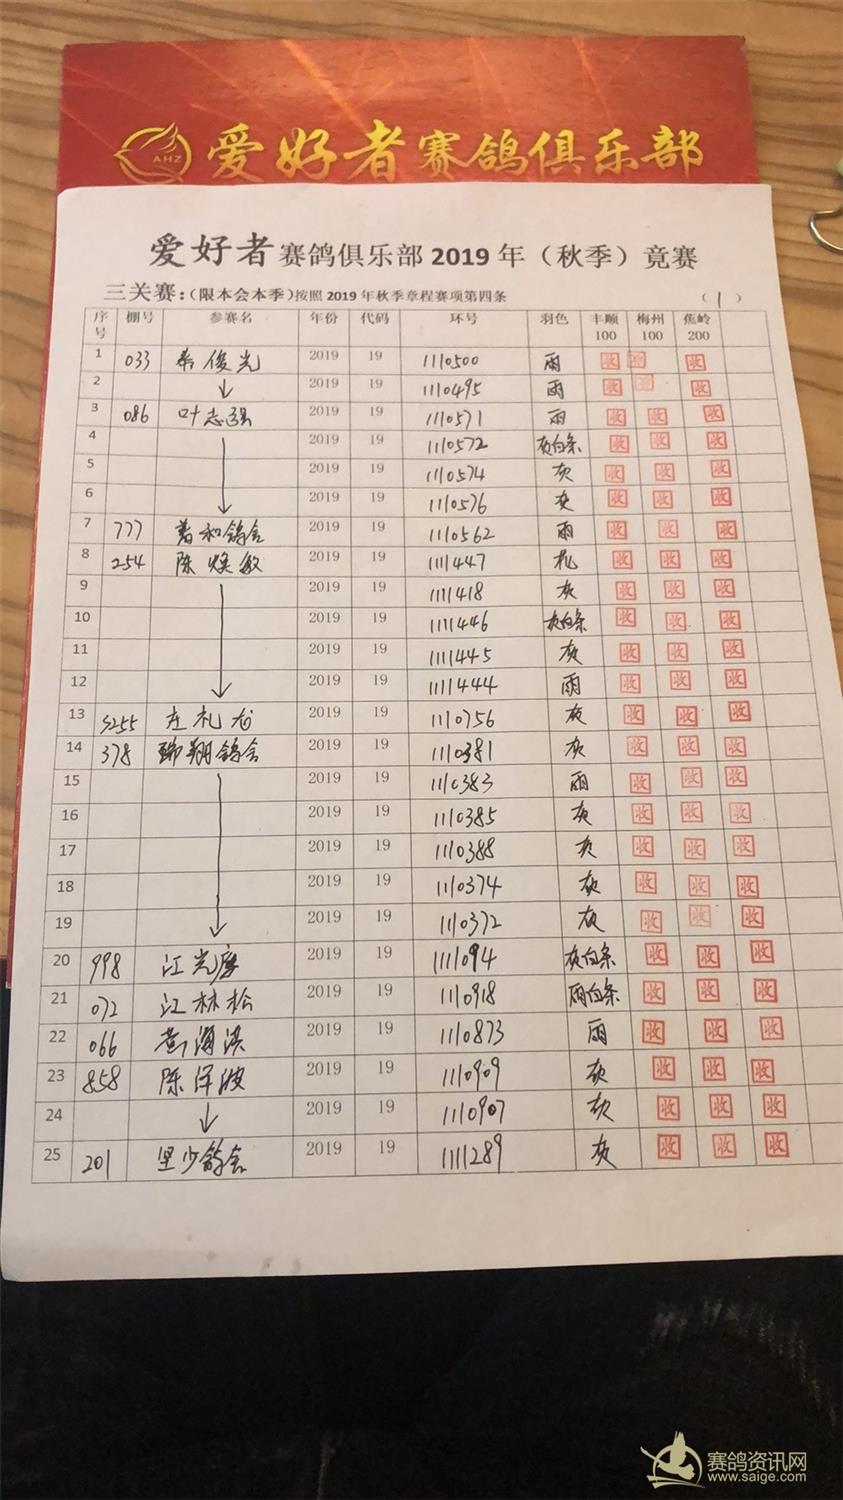 AHZ 爱好者赛鸽俱乐部
爱好者赛鸽俱乐部2019年（秋季）竟赛
三关赛：（限本会本季）按照2019年秋季章程赛项第四条 （1）
序号 棚号 参赛名 年份 代码 环号 羽色 丰顺100 梅州100 蕉岭200
1 033 俊光 2019 19 1110500 雨 收 收
2 ↓ 2019 19 1110495 雨 收 收
3 086 叶志强 2019 19 1110571 雨 收 收 收
4 2019 19 1110572 灰白条 收 收 收
5 2019 19 1110574 灰 收 收 收
6 2019 19 1110576 灰 收 收 收
7 777 和鸽舍 2019 19 1110562 雨 收 收 收
8 254 陈焕敏 2019 19 1111447 收 收 收
9 2019 19 1111418 灰 收 收 收
10 2019 19 1111446 灰白条 收 收 收
11 2019 19 1111445 灰 收 收 收
12 2019 19 1111444 雨 收 收 收
13 S255 庄礼龙 2019 19 1110756 灰 收 收 收
14 378 翔鸽舍 2019 19 1110381 灰 收 收 收
15 2019 19 1110383 雨 收 收 收
16 2019 19 1110385 灰 收 收 收
17 2019 19 1110388 灰 收 收 收
18 2019 19 1110374 灰 收 收 收
19 2019 19 1110372 灰 收 收 收
20 998 江光 2019 19 1111094 灰白条 收 收 收
21 072 江林松 2019 19 1110918 雨白条 收 收 收
22 066 黄海洪 2019 19 1110873 雨 收 收 收
23 858 陈泽波 2019 19 1110909 灰 收 收 收
24 ↓ 2019 19 1110907 灰 收 收 收
25 201 坚少鸽舍 2019 19 1111289 灰 收 收 收
赛鸽资讯网
www.saige.com